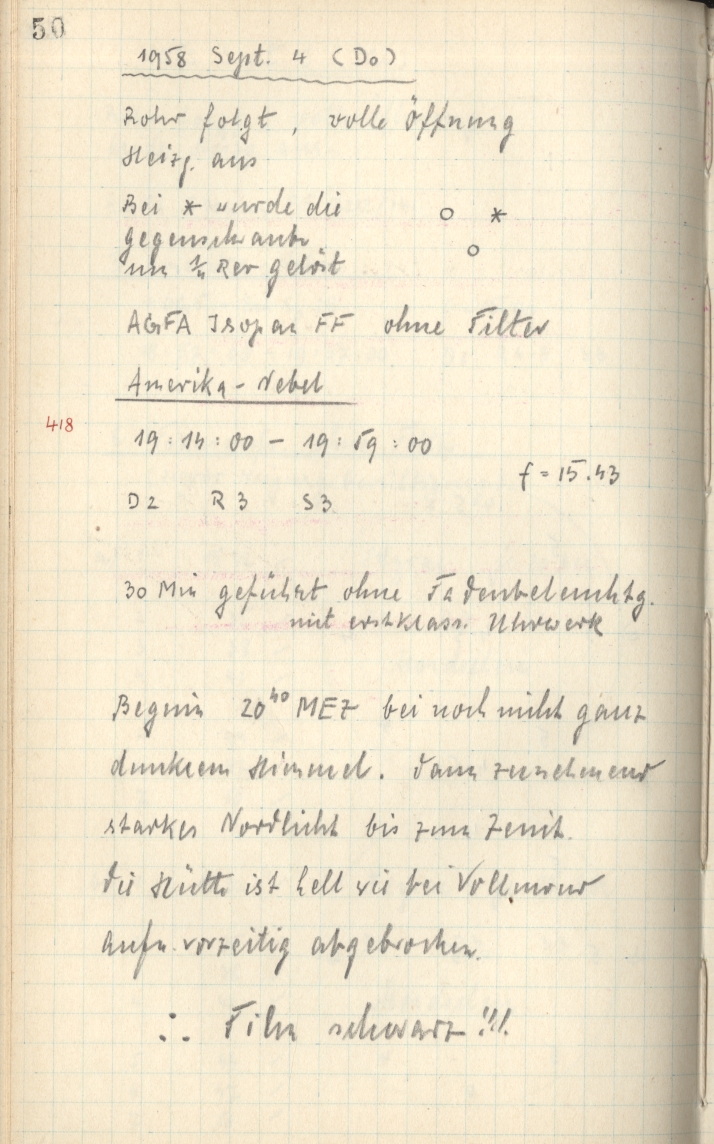 50
1958 Sept. 4 (Do)
Rohr folgt, volle Öffnung
Heizg. aus
Bei * wurde die
gegenschraube
um 1/4 Rev gelöst
AGFA Isopan FF ohne Filter
Amerika-Nebel
418
19:14:00 - 19:59:00
f = 15.43
D2 R3 S3
30 Min geführt ohne Fadenbeleuchtg.
mit erstklass. Uhrwerk
Beginn 20⁴⁰ MEZ bei noch nicht ganz
dunklem Himmel. Dann zunehmend
starkes Nordlicht bis zum Zenit.
Die Hütte ist hell wie bei Vollmond
Aufn. vorzeitig abgebrochen.
∴ Film schwarz!!!